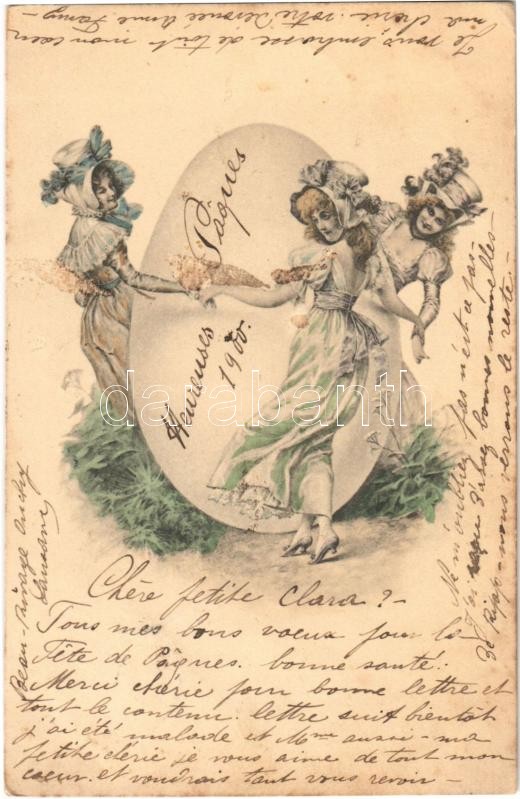 Heureuses Pâques
1900.
Chère petite Clara ? -
Tous mes bons voeux pour la
Fête de Pâques. bonne santé.
Merci chérie pour bonne lettre et
tout le contenu. lettre suit bientôt
j'ai été malade et Mme aussi - ma
petite chérie je vous aime de tout mon
coeur. et voudrais tant vous revoir -
Ne m'oubliez pas n'est-ce pas -
J'ai assez bonnes nouvelles -
de - nous verrons le reste. -
Je vous embrasse de tout mon coeur
ma chérie. votre dévouée Anne
Beau-Rivage Ouchy
Lausanne
darabanth